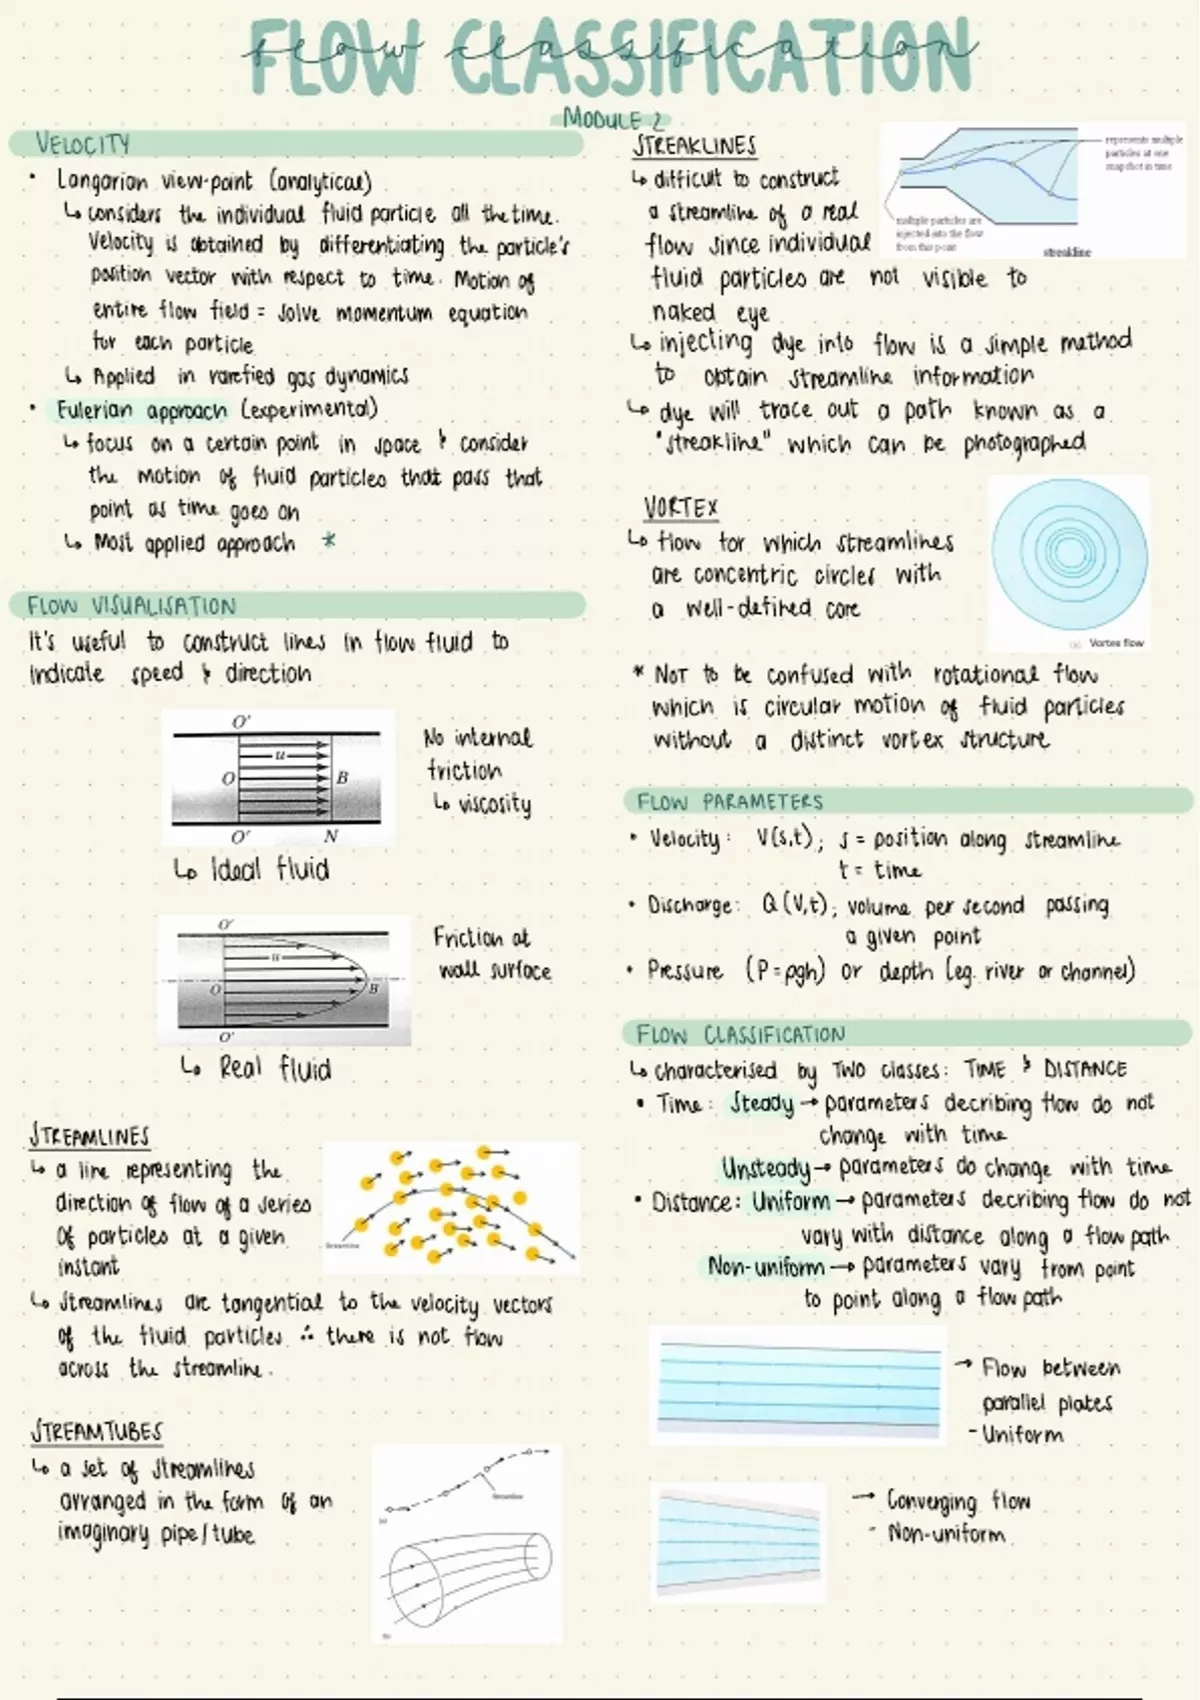 FLOW CLASSIFICATION
flow classification
MODULE 2
VELOCITY
• Langarian view-point (analytical)
↳ considers the individual fluid particle all the time.
Velocity is obtained by differentiating the particle's
position vector with respect to time. Motion of
entire flow field = solve momentum equation
for each particle
↳ Applied in rarefied gas dynamics
• Eulerian approach (experimental)
↳ focus on a certain point in space & consider
the motion of fluid particles that pass that
point as time goes on
↳ Most applied approach *
FLOW VISUALISATION
It's useful to construct lines in flow fluid to
indicate speed & direction
O'
u
O
B
O'
N
No internal
friction
↳ viscosity
↳ Ideal fluid
O'
u
O
B
O'
Friction at
wall surface
↳ Real fluid
STREAMLINES
↳ a line representing the
direction of flow of a series
of particles at a given
instant
Streamline
↳ streamlines are tangential to the velocity vectors
of the fluid particles ∴ there is not flow
across the streamline.
STREAMTUBES
↳ a set of streamlines
arranged in the form of an
imaginary pipe/tube
Streamline
(a)
(b)
STREAKLINES
↳ difficult to construct
a streamline of a real
flow since individual
fluid particles are not visible to
naked eye
represents multiple
particles at one
snapshot in time
multiple particles are
injected into the flow
from this point
streakline
↳ injecting dye into flow is a simple method
to obtain streamline information
↳ dye will trace out a path known as a
"streakline" which can be photographed
VORTEX
↳ flow for which streamlines
are concentric circles with
a well-defined core
Vortex flow
* NOT to be confused with rotational flow
which is circular motion of fluid particles
without a distinct vortex structure
FLOW PARAMETERS
• Velocity: V(s,t); s = position along streamline
t = time
• Discharge: Q(V,t); volume per second passing
a given point
• Pressure (P=ρgh) or depth (eg. river or channel)
FLOW CLASSIFICATION
↳ characterised by TWO classes: TIME & DISTANCE
• Time: Steady → parameters decribing flow do not
change with time
Unsteady → parameters do change with time
• Distance: Uniform → parameters decribing flow do not
vary with distance along a flow path
Non-uniform → parameters vary from point
to point along a flow path
→ Flow between
parallel plates
- Uniform
→ Converging flow
- Non-uniform